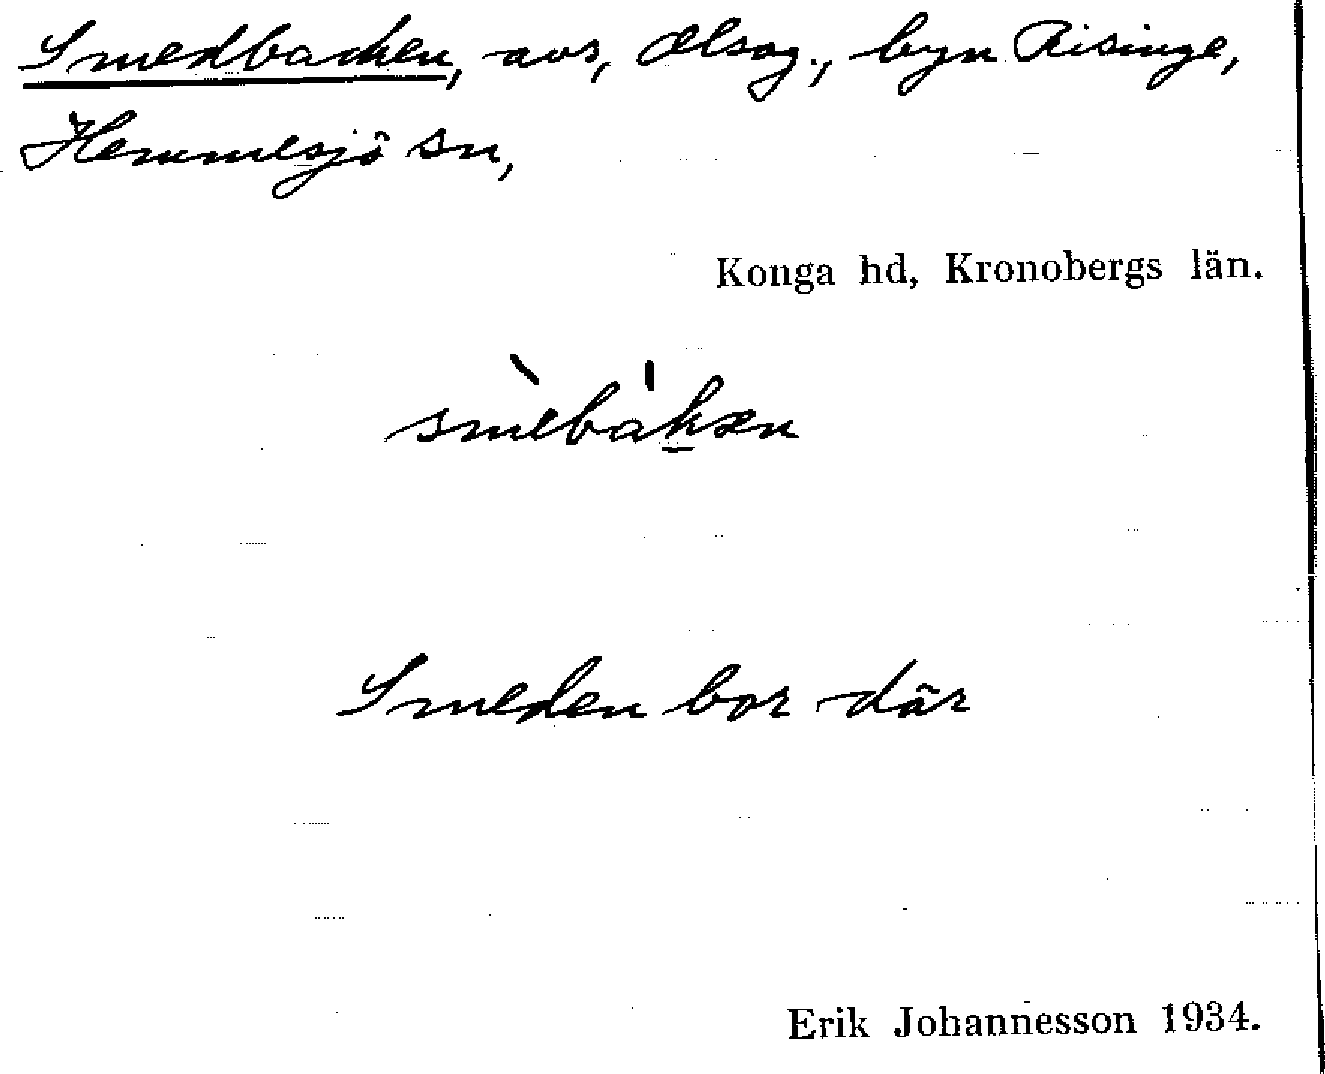 Smedbacken, avs, Elsog., byn Risinge,
Hemmesjö sn,
Konga hd, Kronobergs län.
smèbákæn
Smeden bor där
Erik Johannesson 1934.